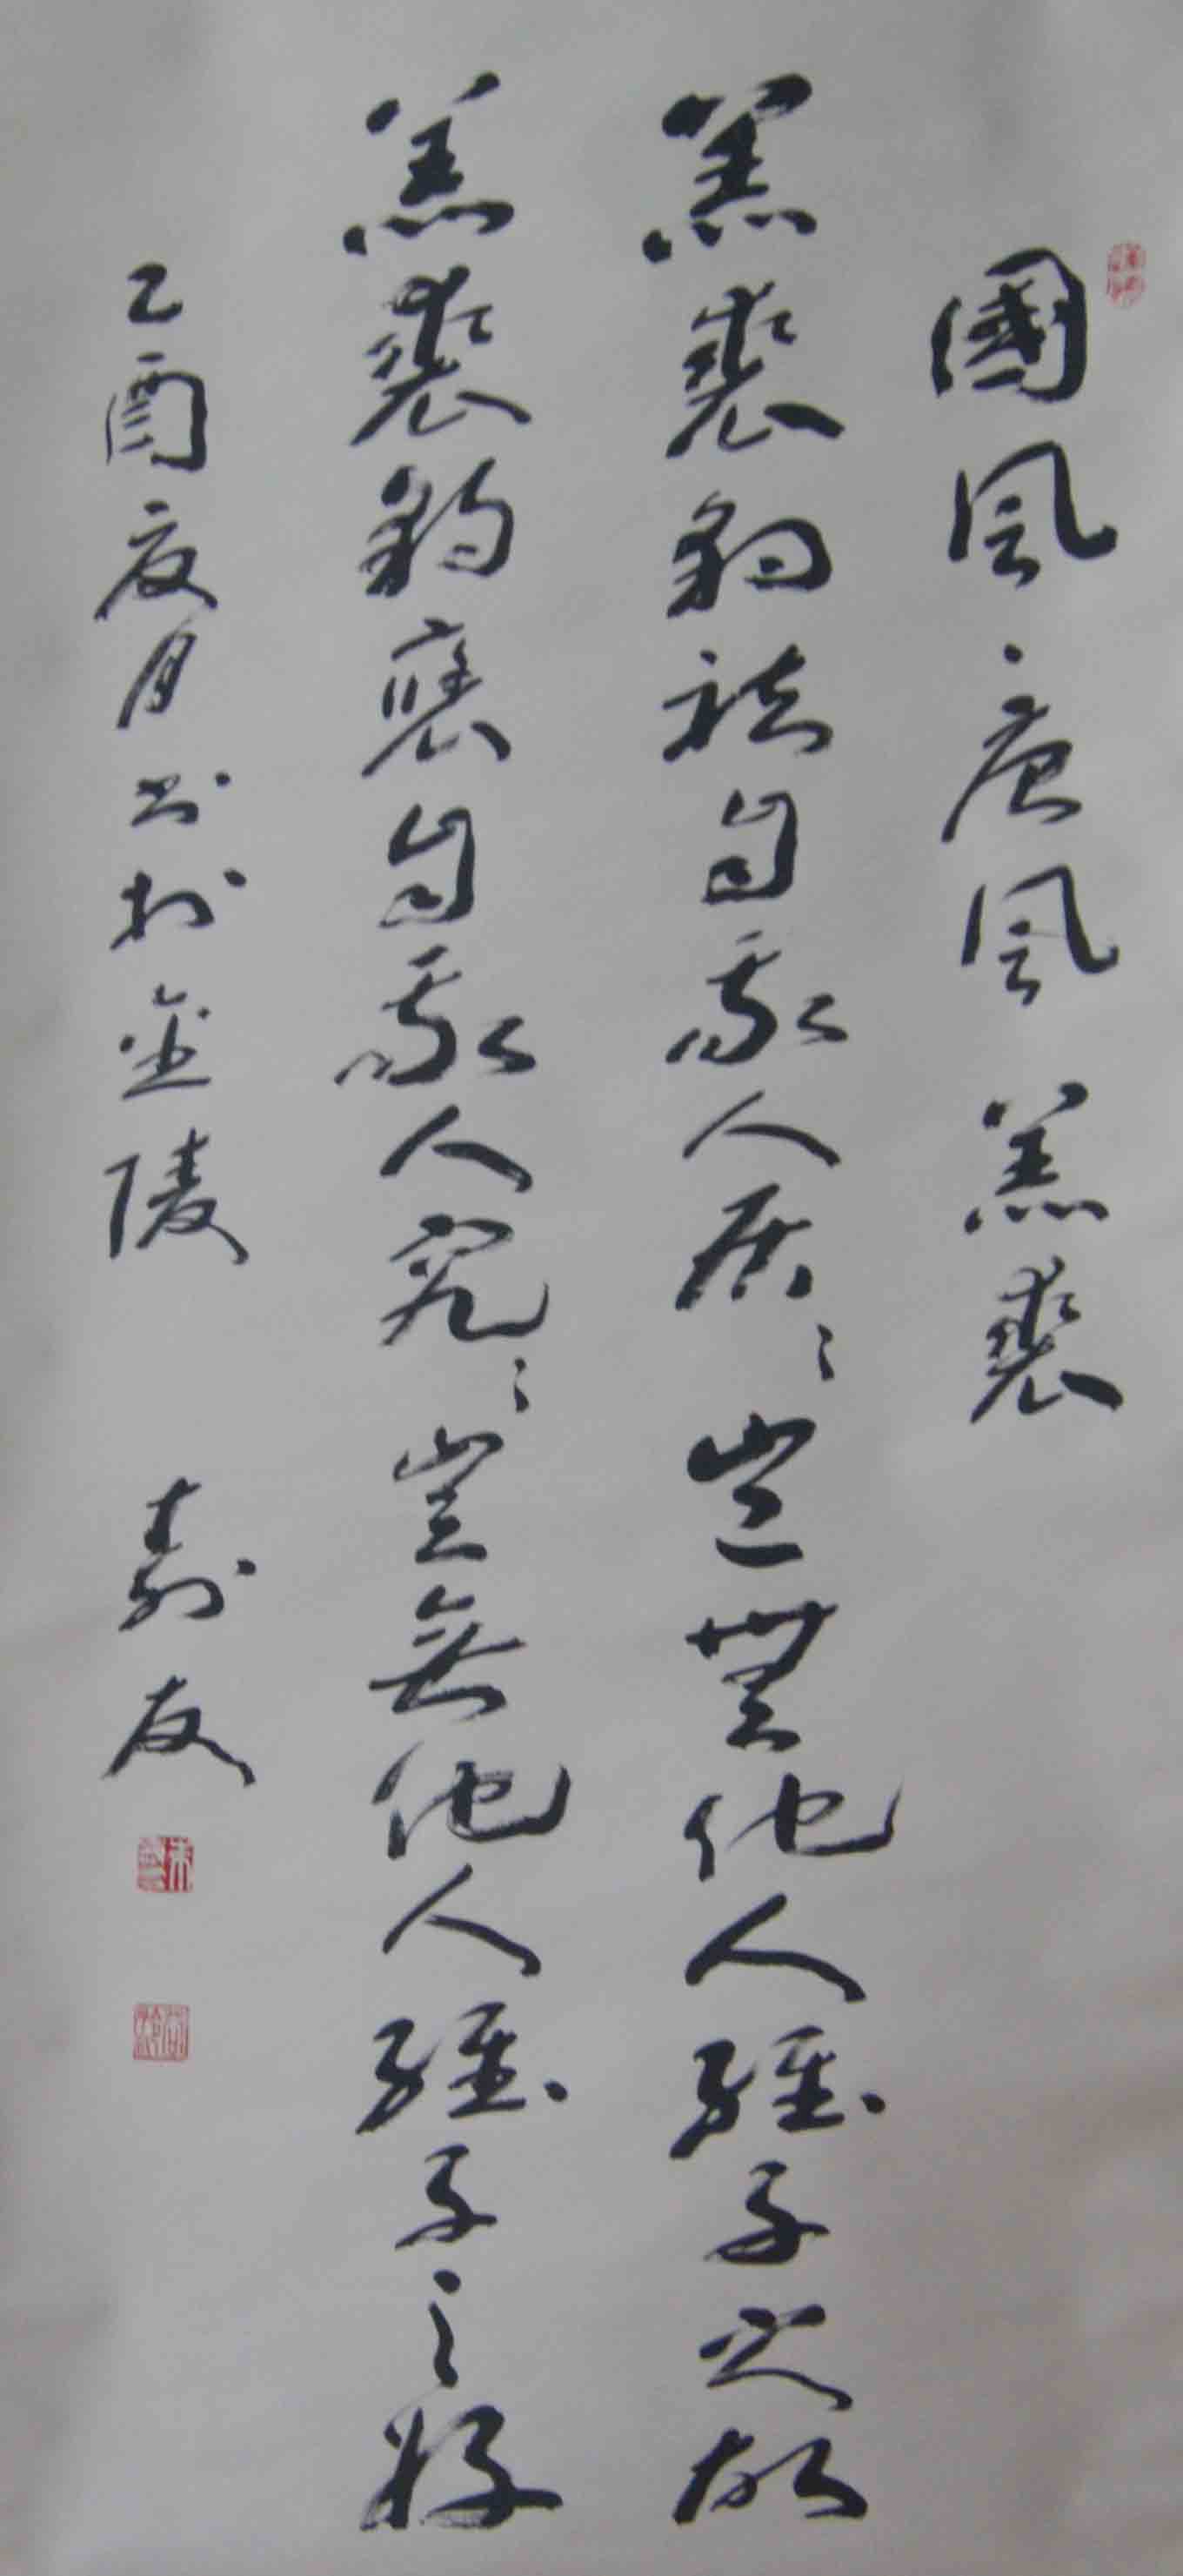 國風唐風 羔裘
羔裘豹袪自我人居〻豈無他人維子之故
羔裘豹褎自我人究〻豈無他人維子之好
乙酉夏月书於金陵 寿友